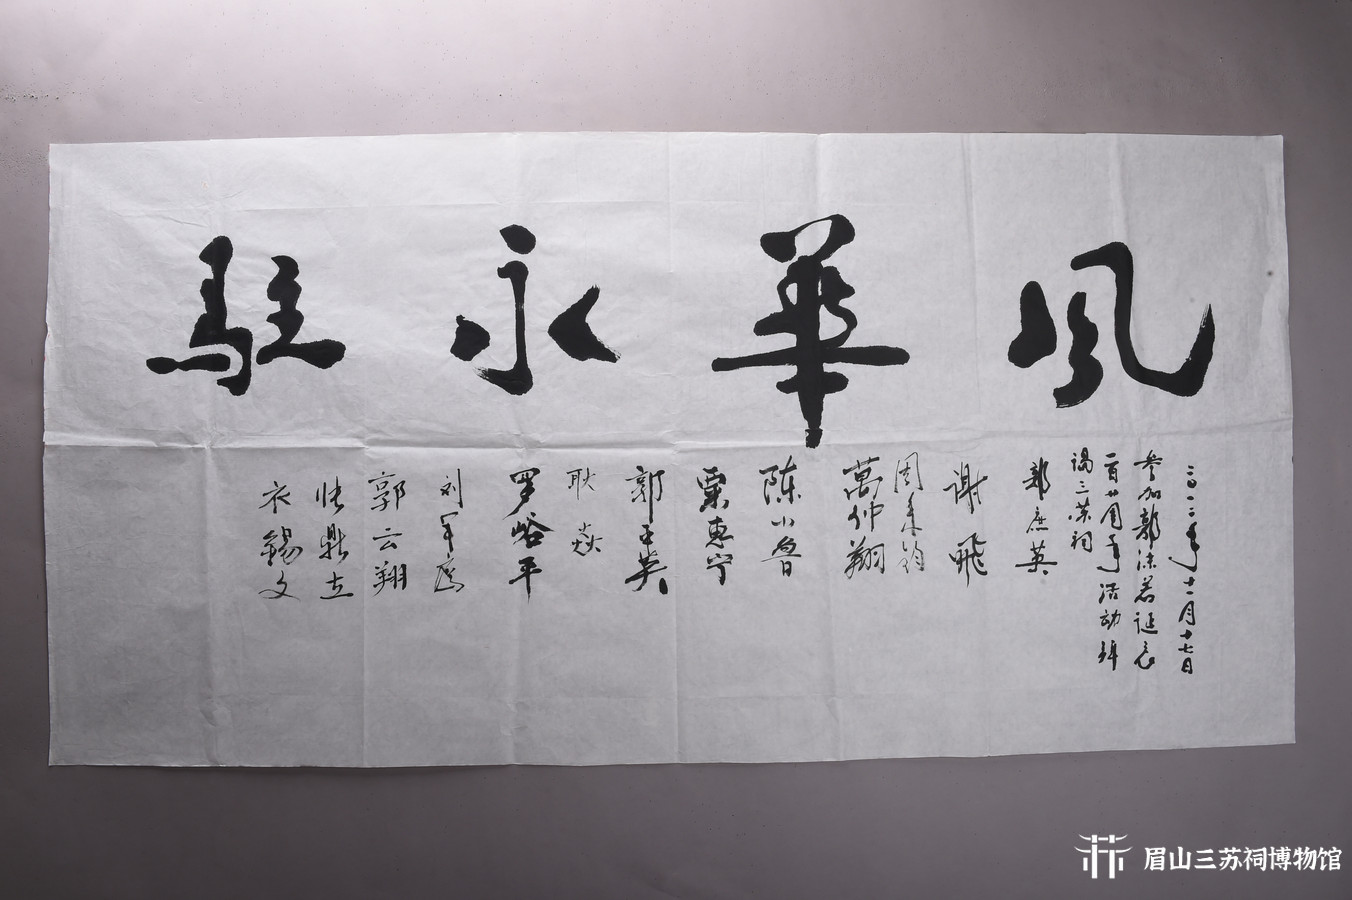 風華永駐
二〇一二年十一月十七日
参加郭沫若诞辰
一百廿周年活动拜
谒三苏祠
郭庶英
谢飛
周秉钧
萬仲翔
陈小鲁
粟惠宁
郭平英
耿焱
罗峪平
刘军
郭云翔
张鼎立
衣錫文
眉山三苏祠博物馆